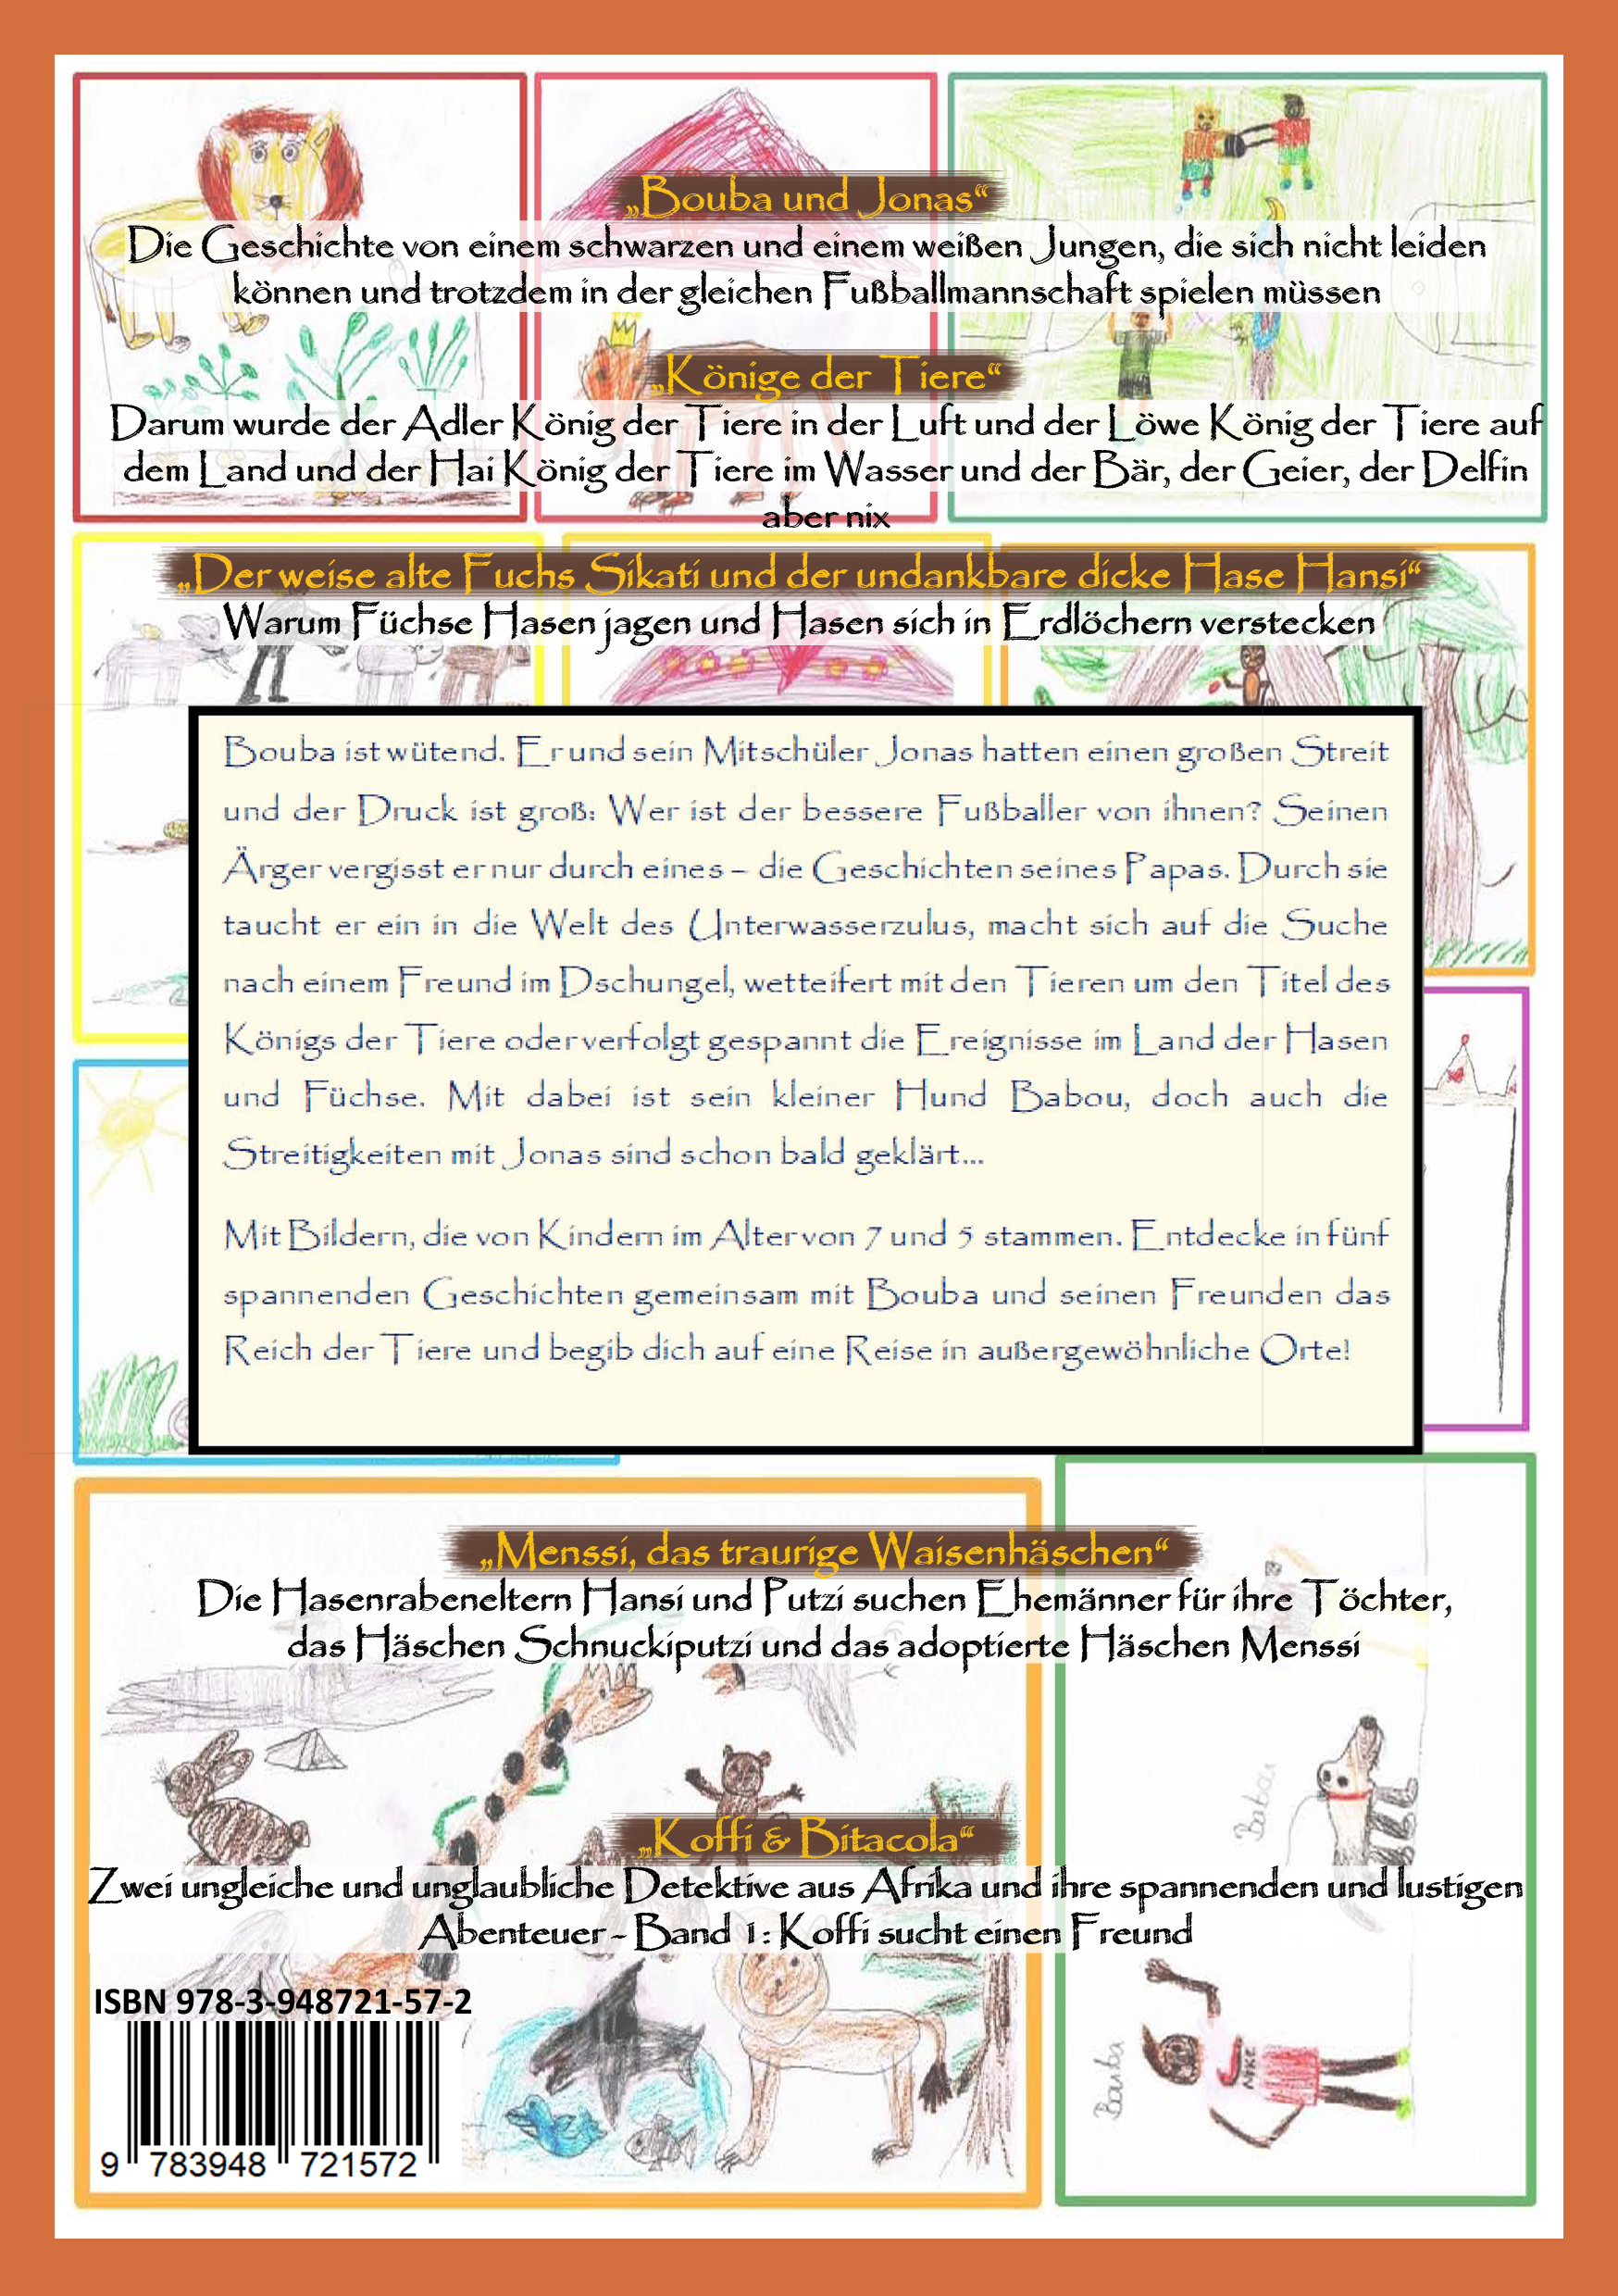 „Bouba und Jonas“
Die Geschichte von einem schwarzen und einem weißen Jungen, die sich nicht leiden
können und trotzdem in der gleichen Fußballmannschaft spielen müssen
„Könige der Tiere“
Darum wurde der Adler König der Tiere in der Luft und der Löwe König der Tiere auf
dem Land und der Hai König der Tiere im Wasser und der Bär, der Geier, der Delfin
aber nix
„Der weise alte Fuchs Sikati und der undankbare dicke Hase Hansi“
Warum Füchse Hasen jagen und Hasen sich in Erdlöchern verstecken
Bouba ist wütend. Er und sein Mitschüler Jonas hatten einen großen Streit
und der Druck ist groß: Wer ist der bessere Fußballer von ihnen? Seinen
Ärger vergisst er nur durch eines – die Geschichten seines Papas. Durch sie
taucht er ein in die Welt des Unterwasserzulus, macht sich auf die Suche
nach einem Freund im Dschungel, wetteifert mit den Tieren um den Titel des
Königs der Tiere oder verfolgt gespannt die Ereignisse im Land der Hasen
und Füchse. Mit dabei ist sein kleiner Hund Babou, doch auch die
Streitigkeiten mit Jonas sind schon bald geklärt...
Mit Bildern, die von Kindern im Alter von 7 und 5 stammen. Entdecke in fünf
spannenden Geschichten gemeinsam mit Bouba und seinen Freunden das
Reich der Tiere und begib dich auf eine Reise in außergewöhnliche Orte!
„Menssi, das traurige Waisenhäschen“
Die Hasenrabeneltern Hansi und Putzi suchen Ehemänner für ihre Töchter,
das Häschen Schnuckiputzi und das adoptierte Häschen Menssi
Babou
„Koffi & Bitacola“
Zwei ungleiche und unglaubliche Detektive aus Afrika und ihre spannenden und lustigen
Abenteuer - Band 1: Koffi sucht einen Freund
Bouba
NIKE
ISBN 978-3-948721-57-2
9 783948 721572